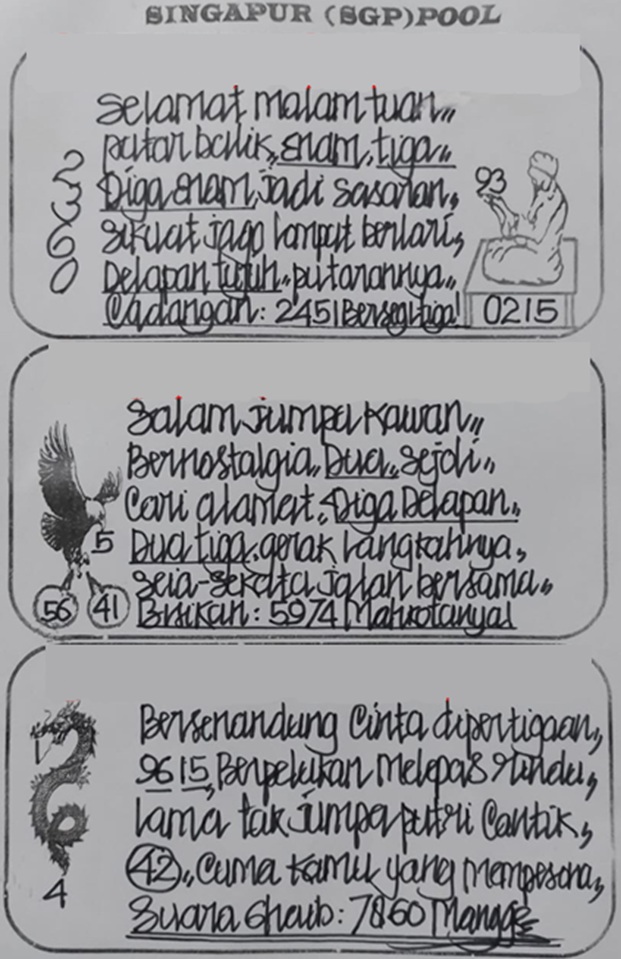 SINGAPUR (SGP)POOL
Selamat malam tuan,,
putar balik, enam, tiga,,
Diga enam, jadi sasaran,
Sikuat jago lompat berlari,
Delapan tujuh,, putarannya,,
Cadangan: 2451 Bersegitiga!
2
3
6
0
93
0215
Salam jumpa kawan,,
Bernostalgia,, Dua,, Sejoli,,
Cari alamat, Diga Delapan,,
Dua tiga, gerak langkahnya,
Seia-Sekata jalan bersama,,
Bisikan: 5974 Mahkotanya!
5
56
41
Bersenandung Cinta dipertigaan,
9615, Berpelukan Melepas rindu,
lama tak jumpa putri Cantik,
42,, Cuma kamu yang mempesona,
Suara Ghaib: 7860
4